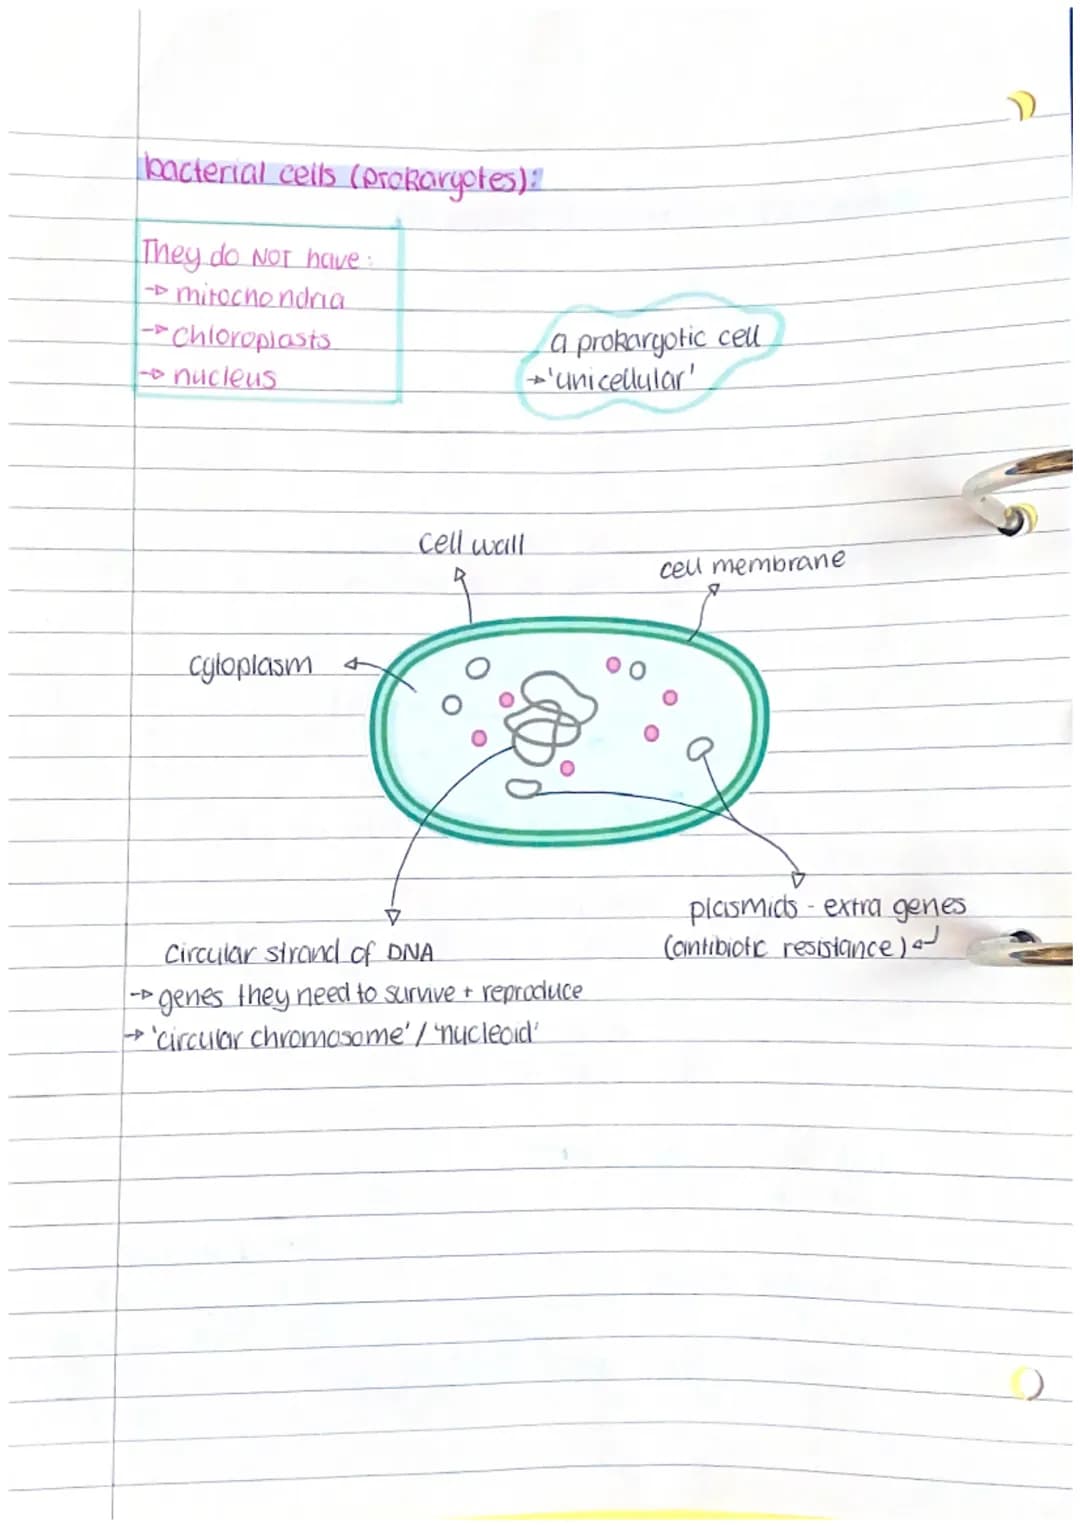 bacterial cells (prokaryotes):
They do NOT have:
→ mitochondria
→ chloroplasts
→ nucleus
a prokaryotic cell
→ 'unicellular'
cell wall
cell membrane
cytoplasm
plasmids - extra genes
(antibiotic resistance) ↵
Circular strand of DNA
→ genes they need to survive + reproduce
→ 'circular chromosome' / 'nucleoid'